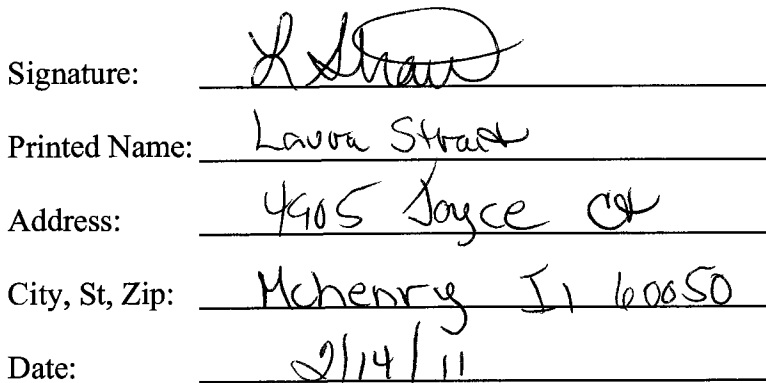 Signature: L Strait
Printed Name: Laura Strait
Address: 4905 Joyce Ct
City, St, Zip: Mchenry Il 60050
Date: 2/14/11